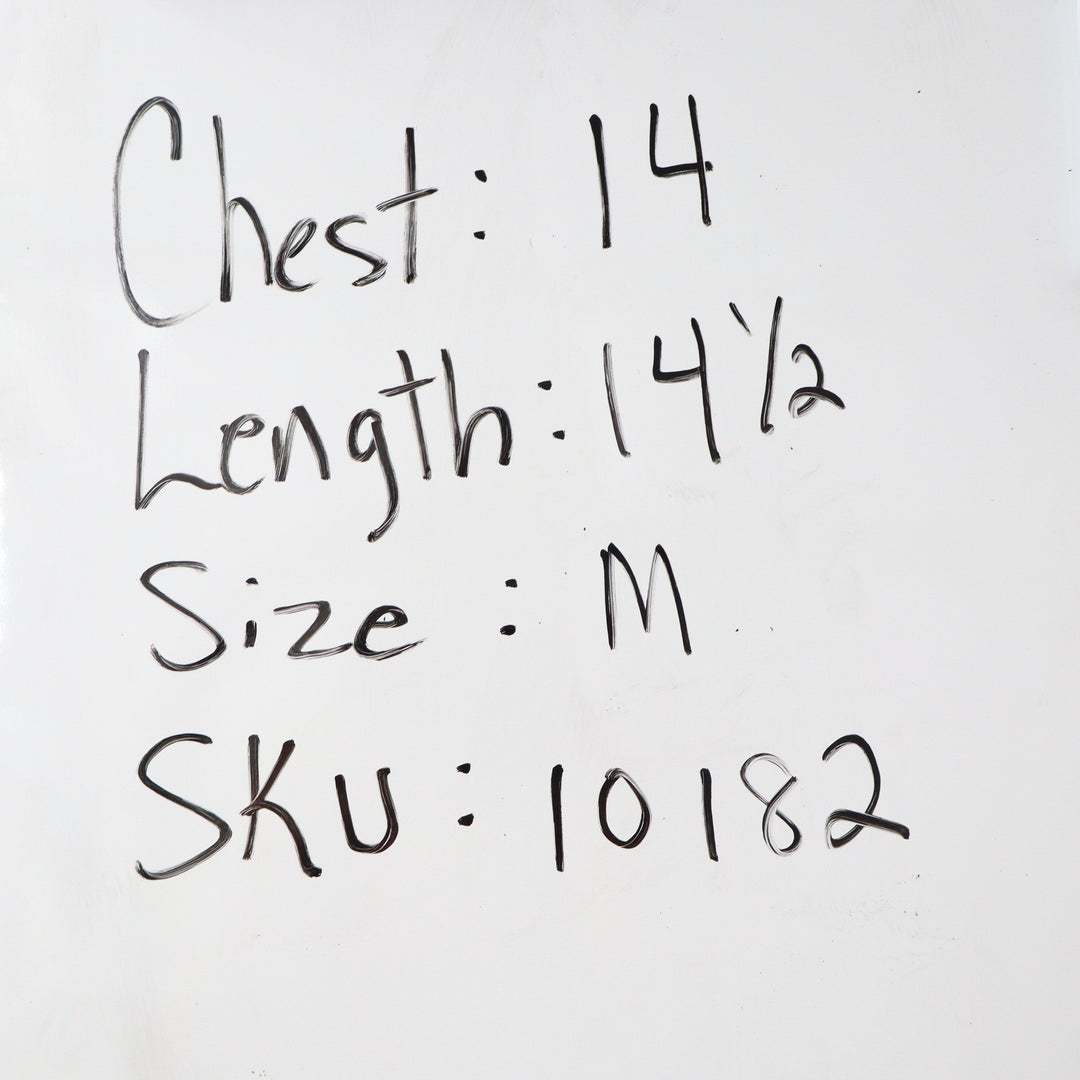 Chest: 14
Length: 14 1/2
Size: M
SKU: 10182